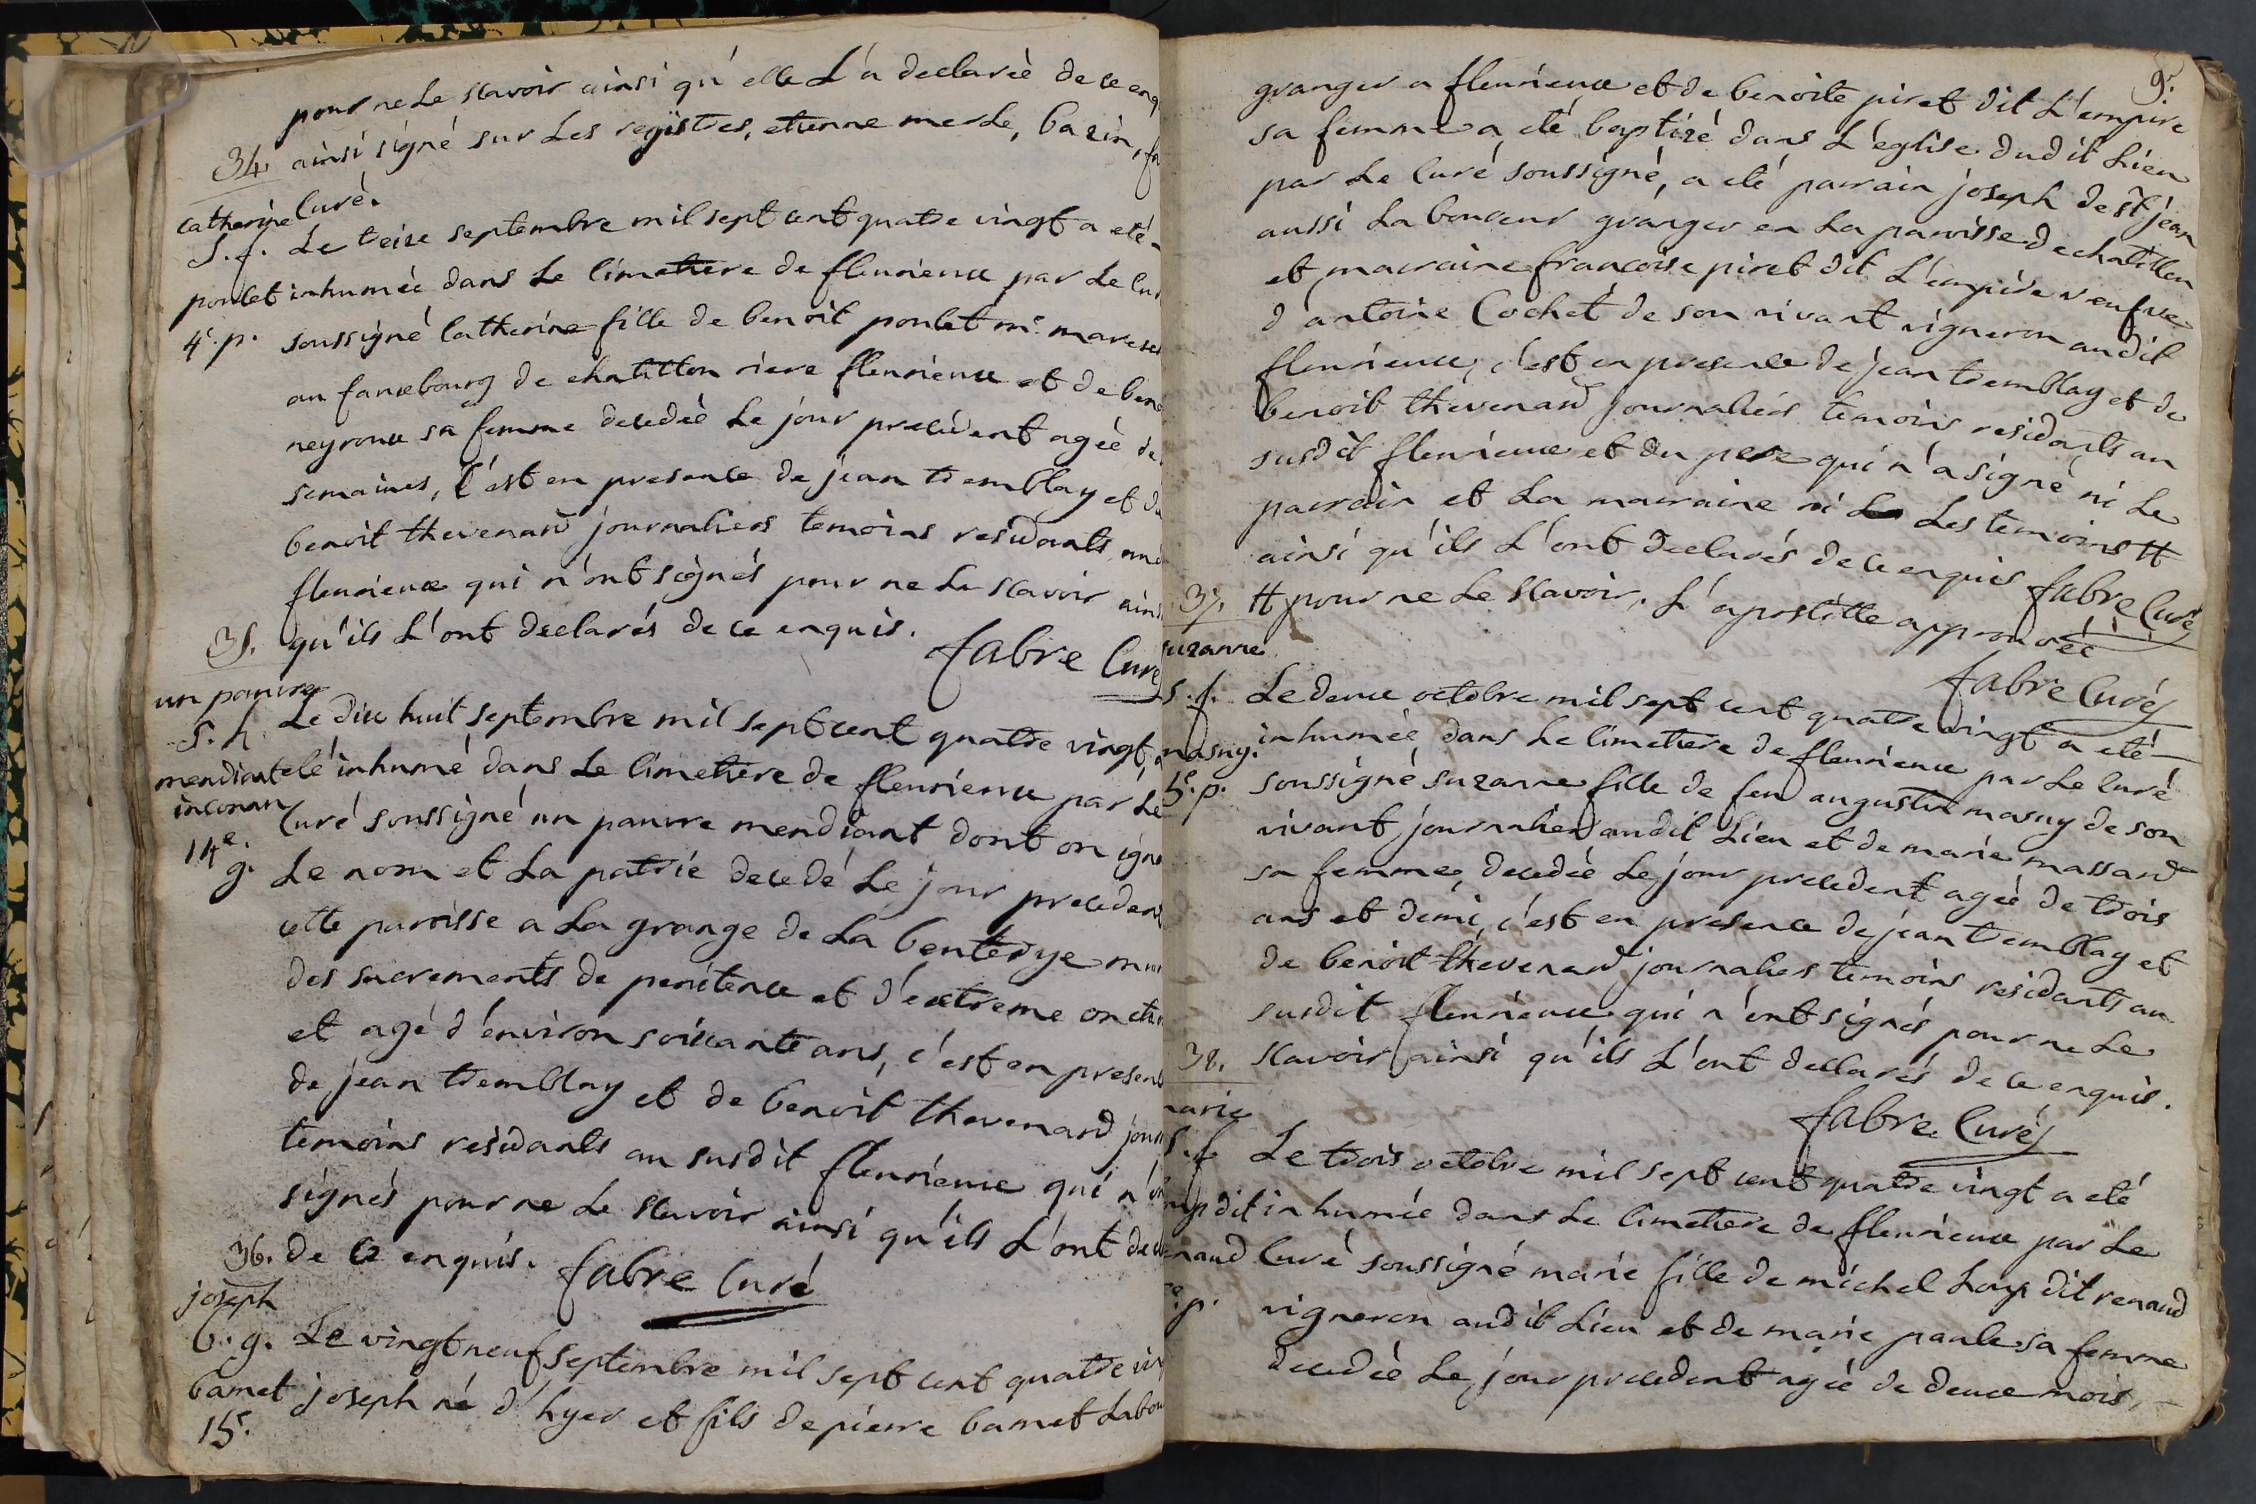 pour ne Le scavoir ainsi qu'elle L'a declareè de ce enq
34. ainsi signé sur Les regîstres, etienne merle, bazin, fa
Curé.
catherine
S. f. Le treize septembre mil sept cent quatre vingt a eté
poulet inhumeè dans Le Cimetiere de fleurieux par Le Cur
4e. p. soussigné Catherine fille de benoit poulet me. marechal
au fauxbourg de chatillon riere fleurieux et de beno
neyroux sa femme decedeè Le jour precedent ageè de
semaines, C'est en presence de jean tremblay et du
benoit thevenard journaliers temoins residants aud
fleurieux qui n'ont signés pour ne Le scavoir ains
qu'ils L'ont declarés de ce enquis.
fabre Curé
35.
un pauvre
S. h. Le dix huit septembre mil sept cent quatre vingt a
mendiant eté inhumé dans Le Cimetiere de fleurieux par Le
inconnu Curé soussigné un pauvre mendiant dont on igno
14e. g. Le nom et La patrie decedé Le jour precedent
cette paroisse a La grange de La benterye mun
des sacrements de penitence et d'extreme onction
et agé d'environ soixante ans, c'est en presence
de jean tremblay et de benoit thevenard journ
temoins residants au susdit fleurieux qui n'on
signés pour ne Le scavoir ainsi qu'ils L'ont decl
36. de ce enquis. fabre Curé
joseph
b. g. Le vingt neuf septembre mil sept cent quatre vin
bamet joseph né d'hyer et fils de pierre bamet Labou
15e.
9e.
granger a fleurieux et de benoite piret dit L'empire
sa femme a eté baptizé dans L'eglise dudit Lieu
par Le Curé soussigné, a eté parrain joseph de St jean
aussi Laboureur granger en La paroisse de chatillon
et marraine francoise piret dit L'empire veufve
d'antoine Cochet de son vivant vigneron audit
fleurieux, c'est en presence de jean tremblay et de
benoit thevenard journaliers temoins residants au
susdit fleurieux et du pere qui n'a signé ni Le
parrain et La marraine ni Les temoins #
ainsi qu'ils L'ont declarés de ce enquis fabre Curé
# pour ne Le scavoir, L'apostille approuveè
fabre Curé
37.
suzanne
S. f. Le deux octobre mil sept cent quatre vingt a eté
masuy. inhumeè dans Le Cimetiere de fleurieux par Le Curé
5e. p. soussigné suzanne fille de feu augustin masuy de son
vivant journalier audit Lieu et de marie massard
sa femme, decedeè Le jour precedent ageè de trois
ans et demi, c'est en presence de jean tremblay et
de benoit thevenard journaliers temoins residants au
susdit fleurieux qui n'ont signés pour ne Le
scavoir ainsi qu'ils L'ont declarés de ce enquis.
fabre Curé
38.
marie
S. f. Le trois octobre mil sept cent quatre vingt a eté
loup dit inhumeè dans Le Cimetiere de fleurieux par Le
renaud Curé soussigné marie fille de michel Loup dit renaud
p. vigneron audit Lieu et de marie paule sa femme
decedeè Le jour precedent ageè de deux mois,